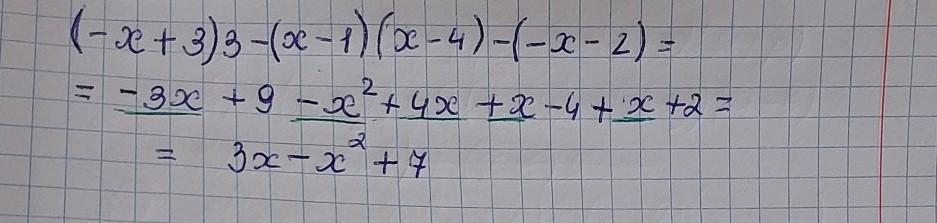 (-x+3)3-(x-1)(x-4)-(-x-2)=
= -3x + 9 - x² + 4x + x - 4 + x + 2 =
= 3x - x² + 7